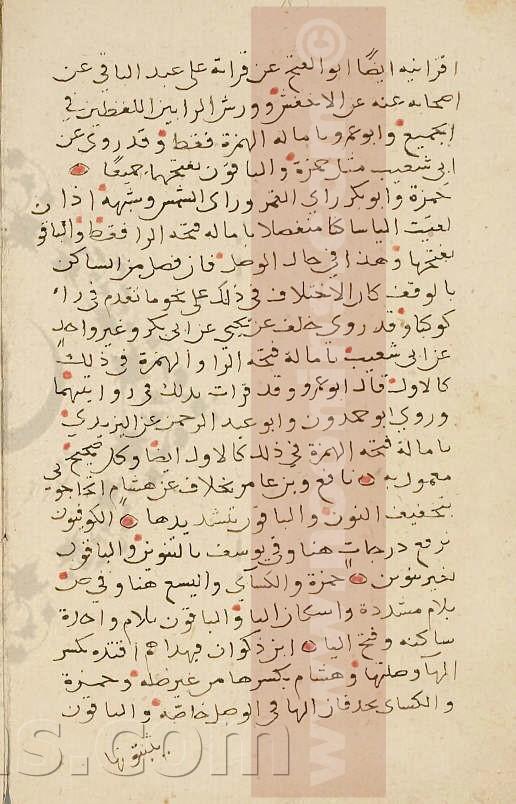 اقرانيه ايضًا ابو الفتح عن قراته على عبد الباقي عن
اصحابه عنه عن الاخفش وورش الرا بين اللفظين في
الجميع وابو عمرو باماله الهمزة فقط وقد روي عن
ابي شعيب مثل حمزة والباقون بفتحهما جميعًا
حمزة وابو بكر راي القمر وراي الشمس وشبهه اذا
لقيت اليا ساكنا منفصلا باماله فتحه الرا فقط والباقو
بفتحها وهذا في حال الوصل فان فصل من الساكن
بالوقف كان الاختلاف في ذلك على نحو ما تقدم في راء
كوكبا وقد روي خلف عن يحيى عن ابي بكر وغير واحد
عن ابي شعيب باماله فتحه الرا والهمزة في ذلك
كالاول قال ابو عمرو وقد قرات بذلك في روايتهما
وروي ابو حمدون وابو عبد الرحمن عن اليزيدي
بامالة فتحه الهمزة في ذلك كالاول ايضا وكل صحيح
معمول به نافع وبن عامر بخلاف عن هشام اتحاجوني
بتخفيف النون والباقون بتشديدها الكوفيون
نرفع درجات هنا وفي يوسف بالتنوين والباقون
بغير تنوين حمزة والكساى واليسع هنا وفي ص
بلام مشددة واسكان اليا والباقون بلام واحدة
ساكنه وفتح اليا ابن ذكوان فبهداهم اقتده بكسر
الها وصلتها وهشام بكسرها من غير صله وحمزة
والكساى بحذفان الها في الوصل خاصه والباقون
يثبتونها
www. ©
s.com